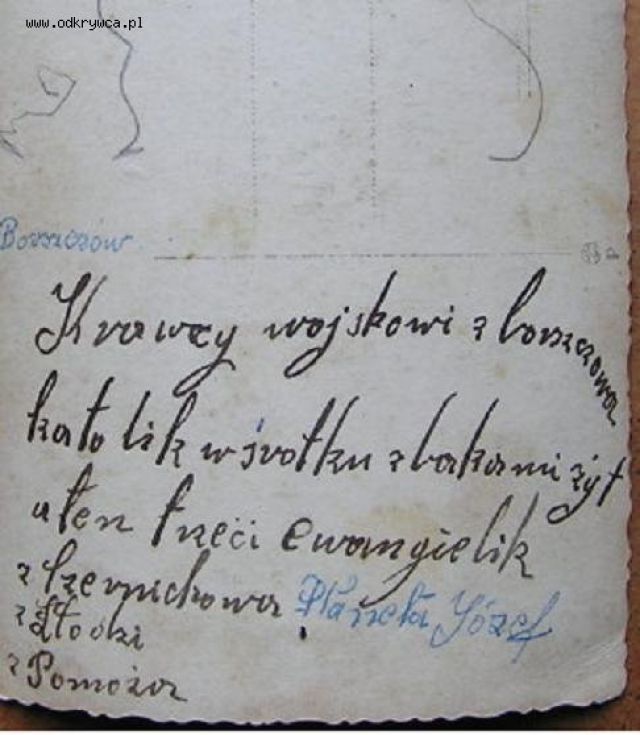 www.odkrywca.pl
Borszczów
Krawcy wojskowi z borszczowa
kato lik w śrotku z bakami żyt
a ten trzeci ewangielik
z czernichowa Planeta Józef
z Łodzi
z Pomoża